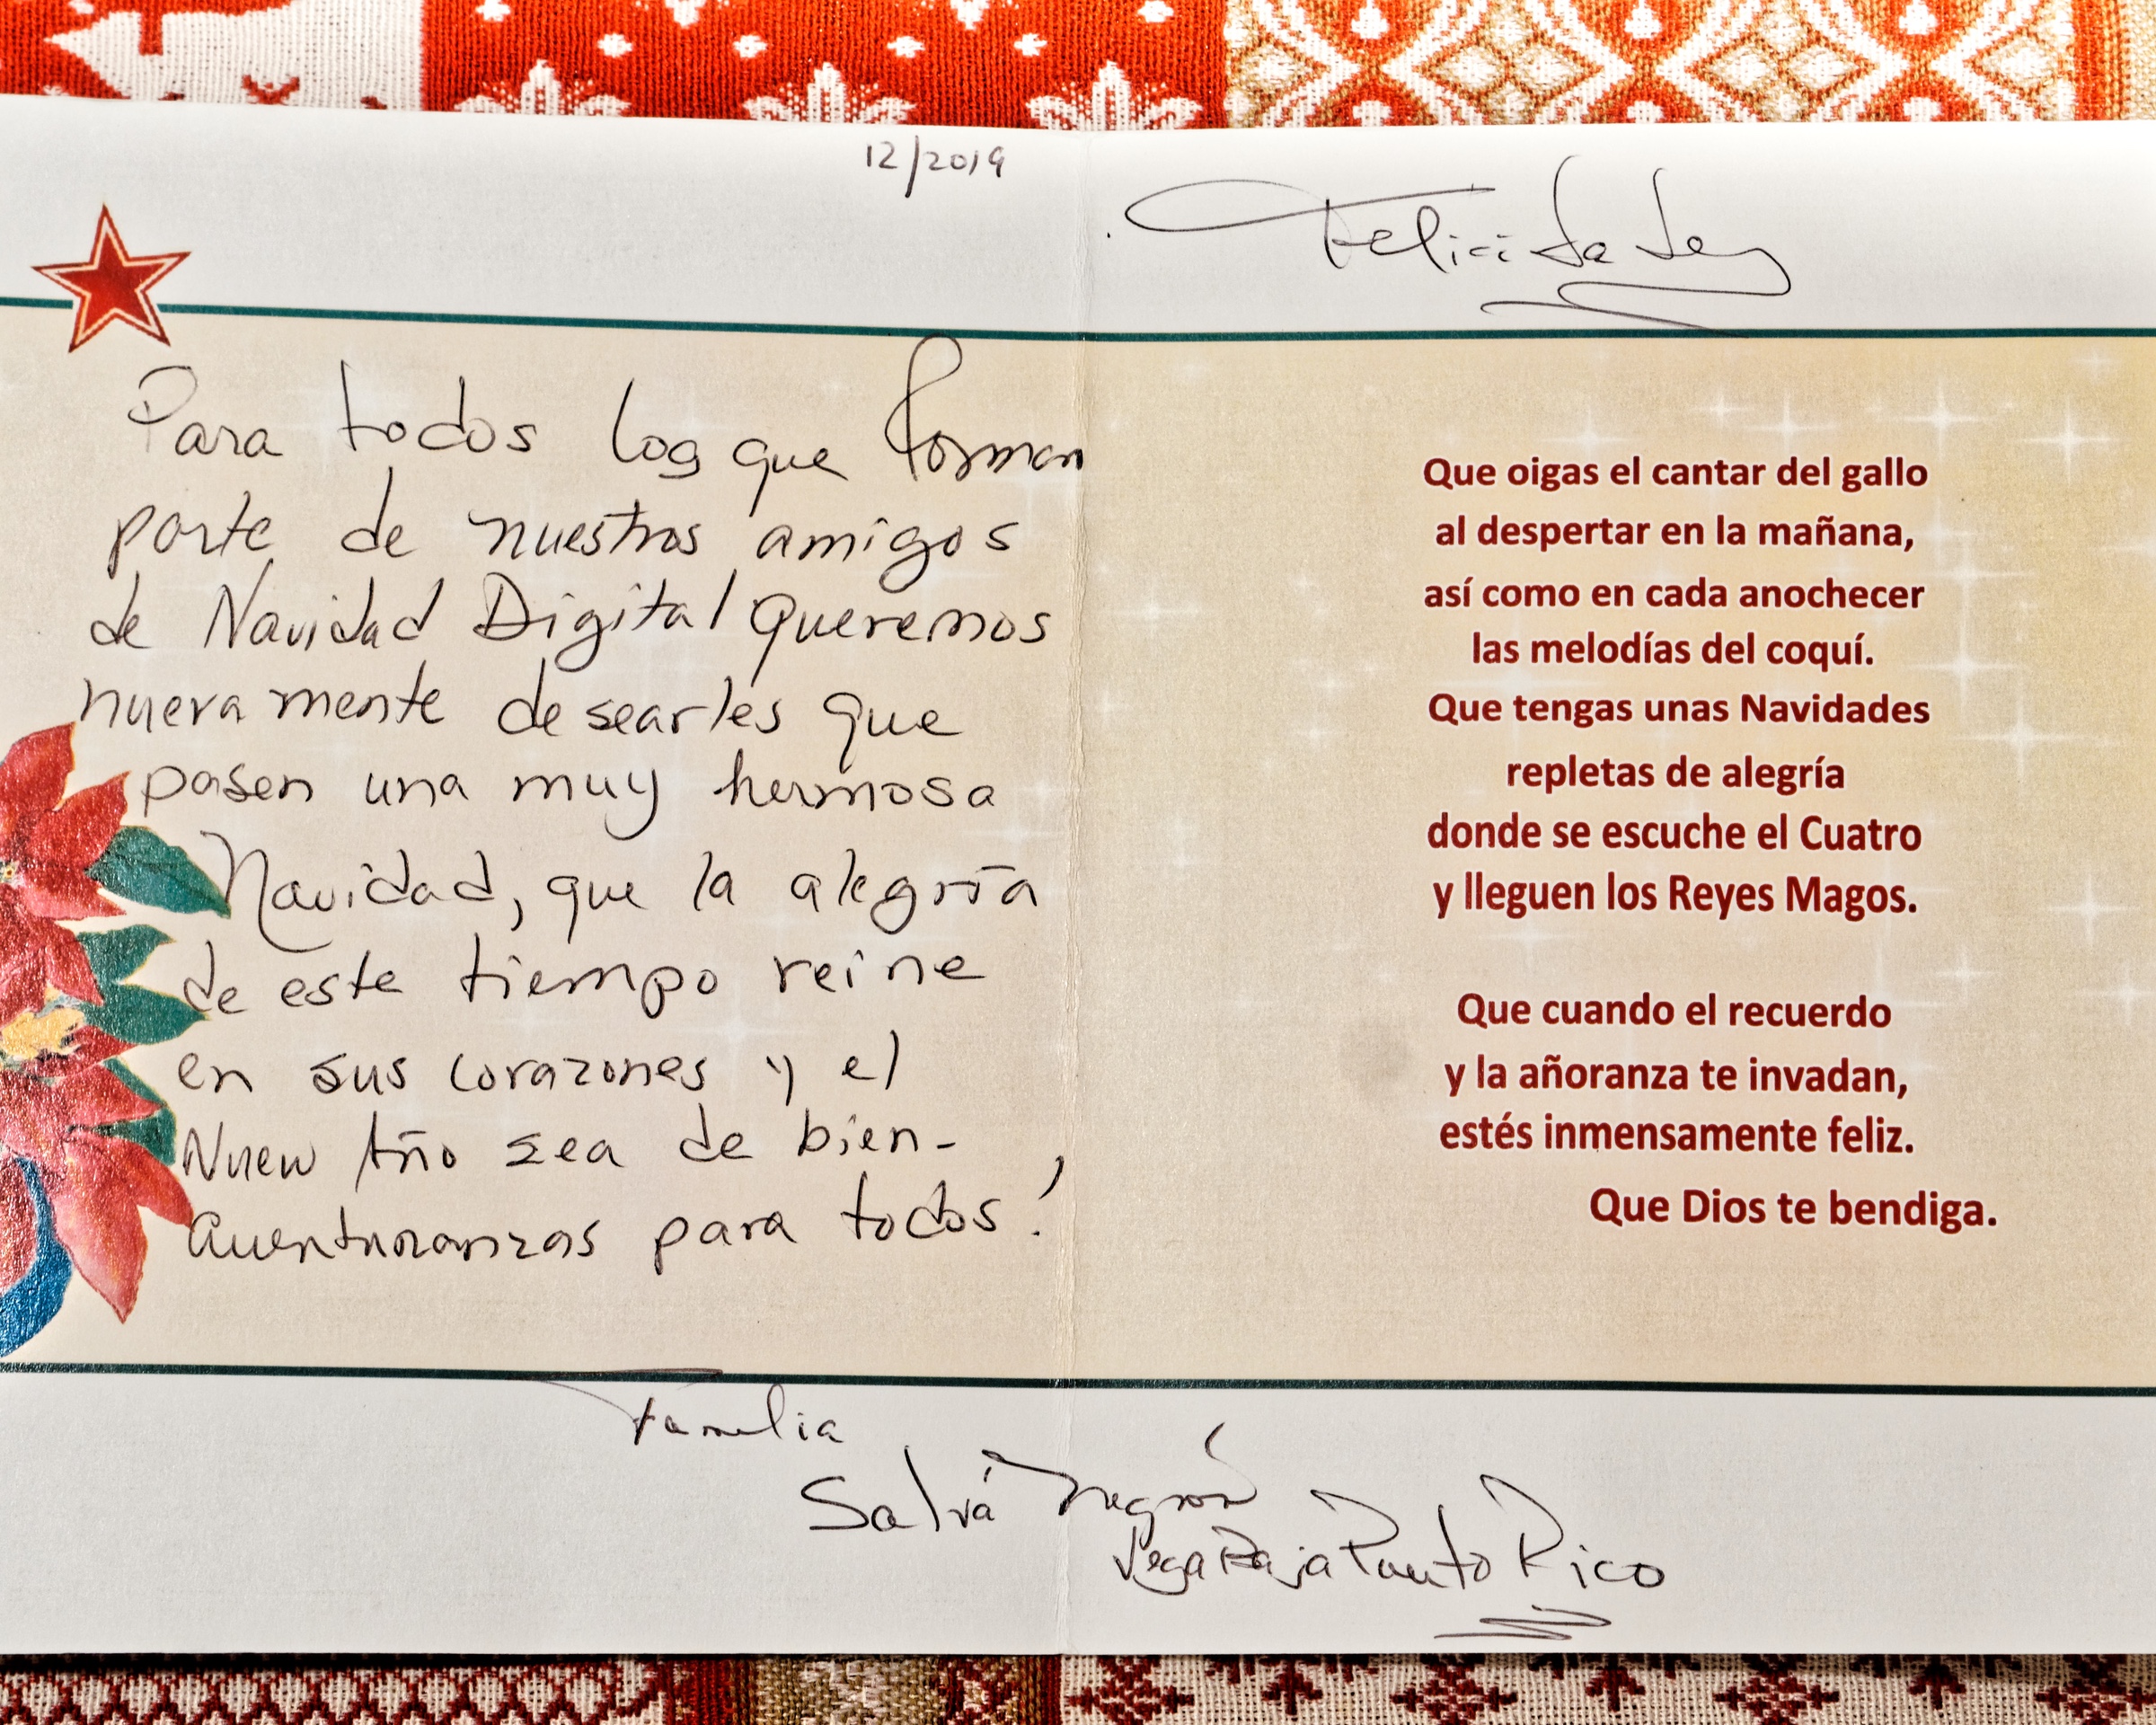 12/2019
Felicidades
Para todos los que forman
parte de nuestros amigos
de Navidad Digital queremos
nuevamente desearles que
pasen una muy hermosa
Navidad, que la alegría
de este tiempo reine
en sus corazones y el
Nuevo Año sea de bien-
aventuranzas para todos!
Que oigas el cantar del gallo
al despertar en la mañana,
así como en cada anochecer
las melodías del coquí.
Que tengas unas Navidades
repletas de alegría
donde se escuche el Cuatro
y lleguen los Reyes Magos.
Que cuando el recuerdo
y la añoranza te invadan,
estés inmensamente feliz.
Que Dios te bendiga.
Familia
Salvá Negrón
Vega Baja Puerto Rico